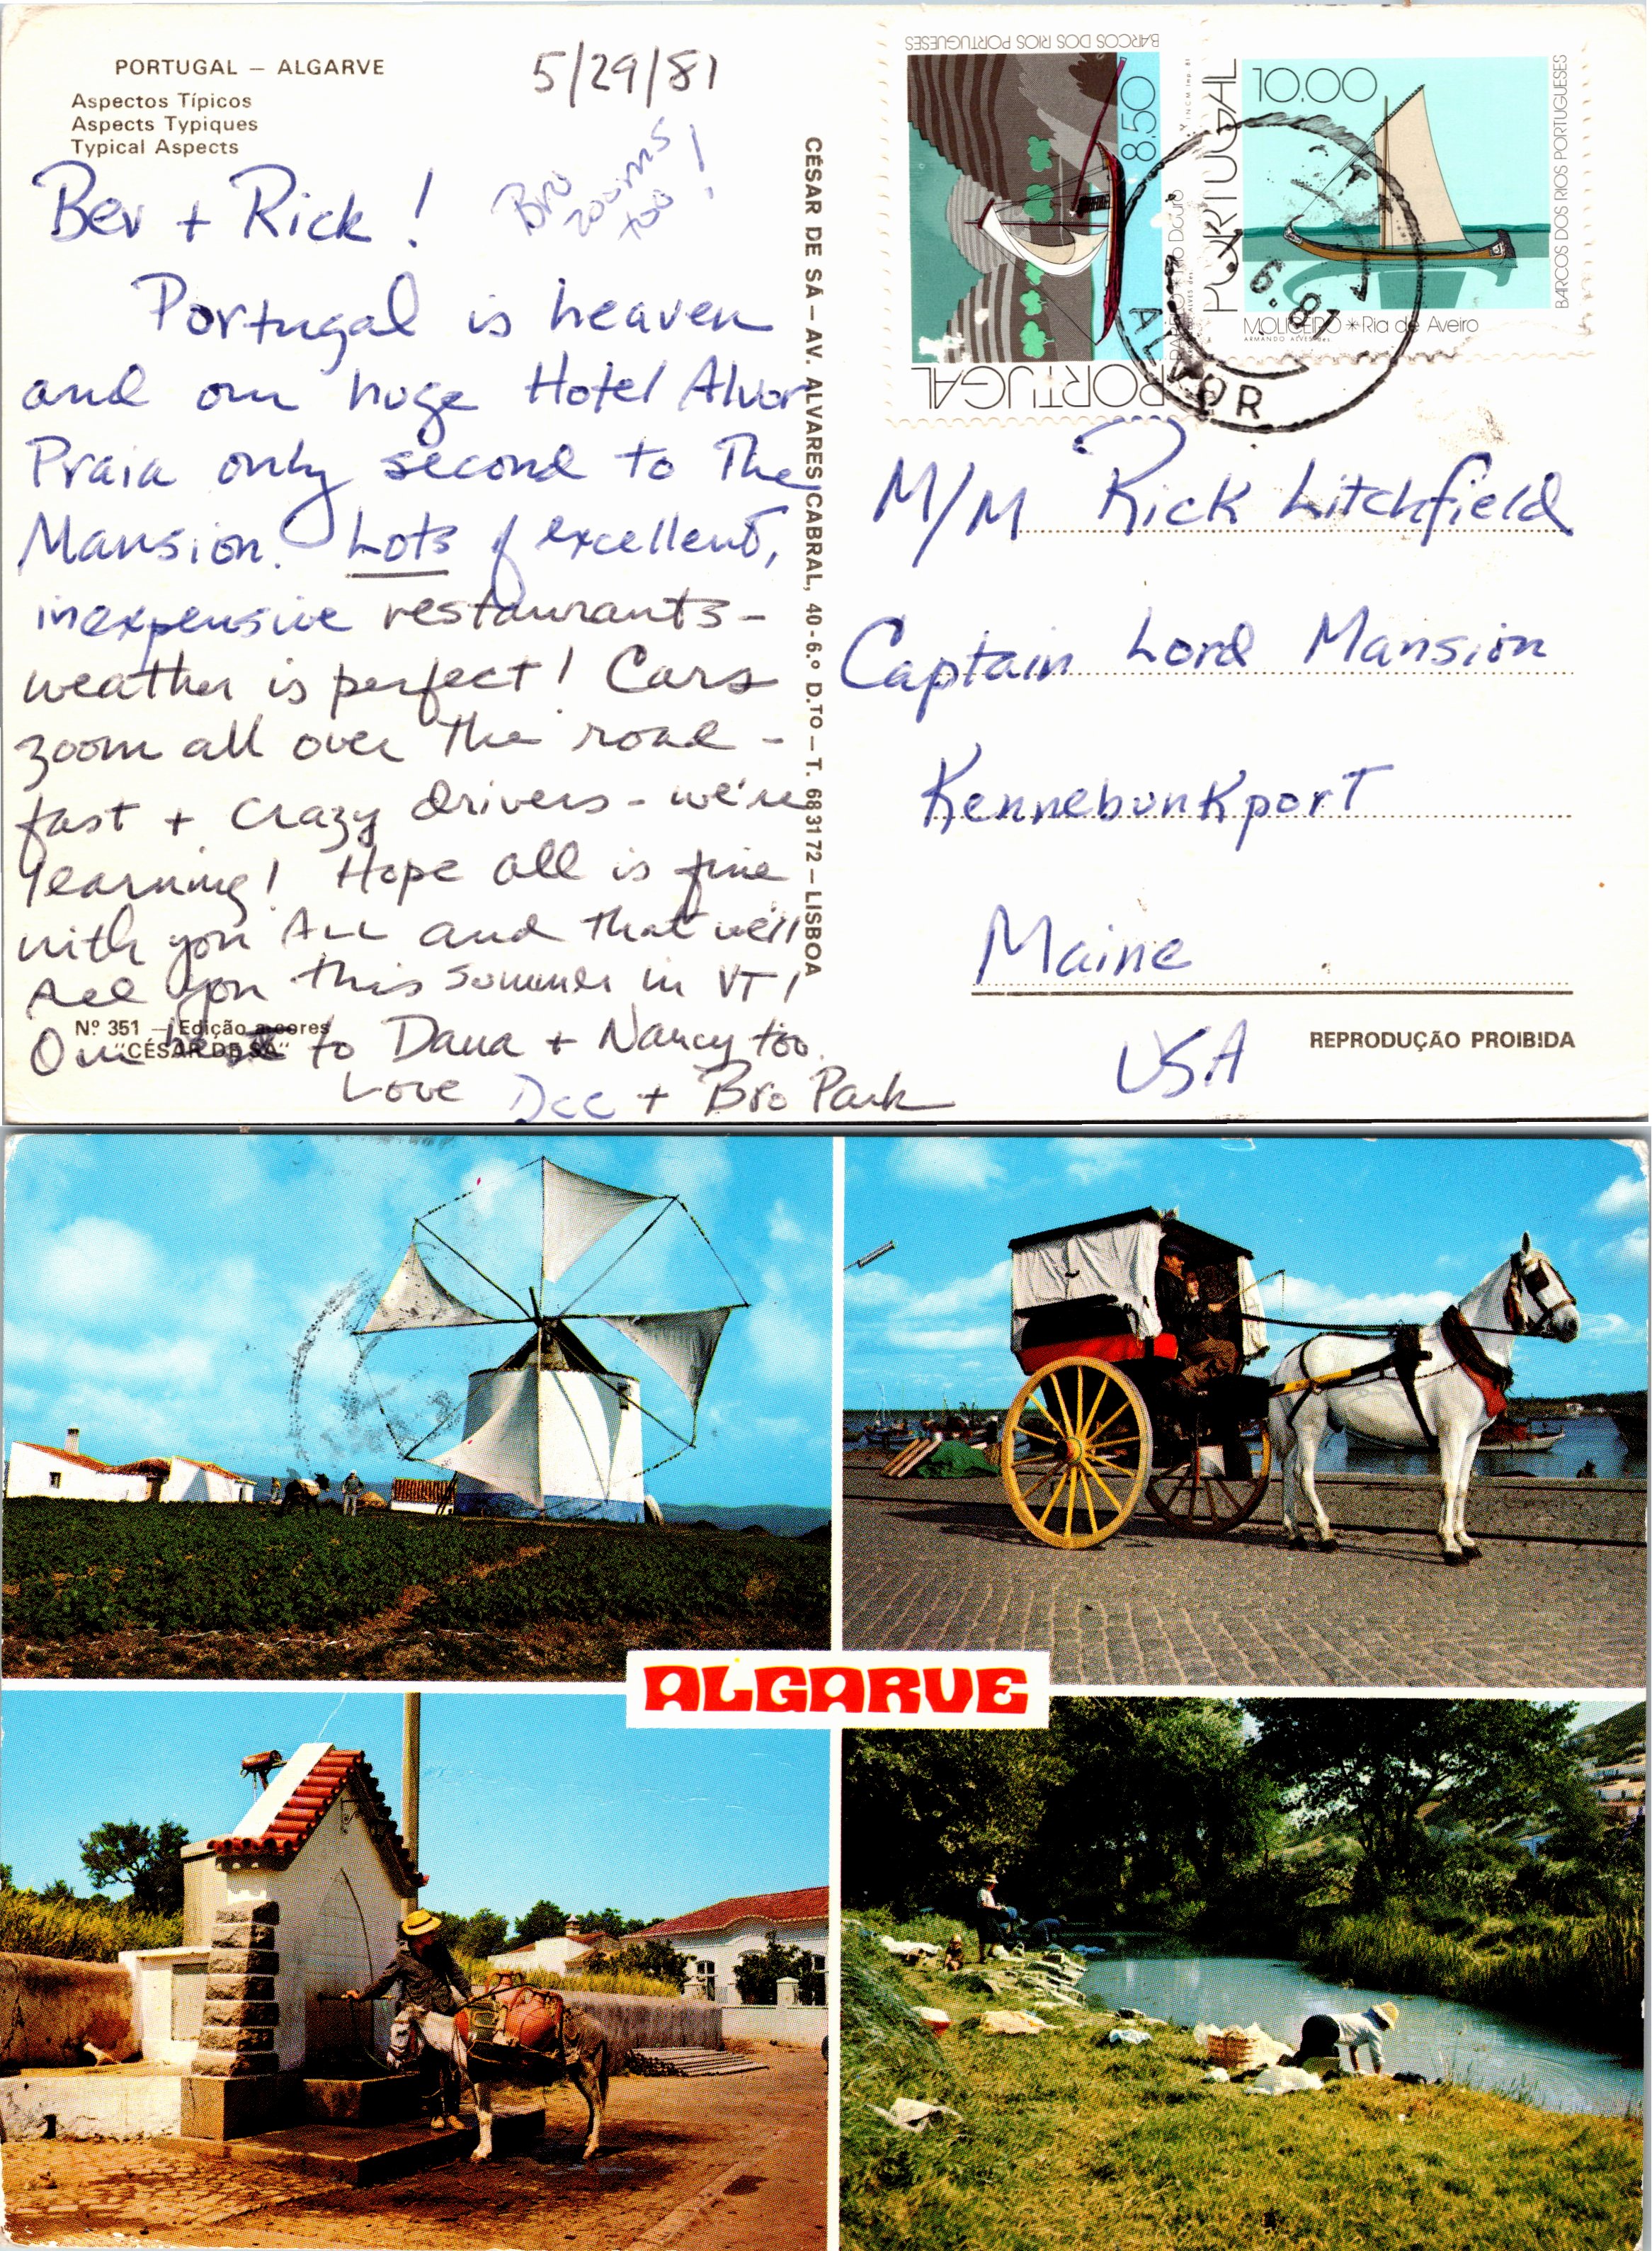 PORTUGAL – ALGARVE
Aspectos Típicos
Aspects Typiques
Typical Aspects
5/29/81
Bro
zooms
too!
Bev + Rick!
Portugal is heaven
and our huge Hotel Alvor
Praia only second to The
Mansion. Lots of excellent,
inexpensive restaurants –
weather is perfect! Cars
zoom all over the road –
fast + crazy drivers – we're
learning! Hope all is fine
with you ALL and that we'll
see you this summer in VT!
Our best to Dana + Nancy too.
Love Dee + Bro Park
Nº 351 – Edição a cores
"CÉSAR DE SÁ"
CÉSAR DE SÁ – AV. ALVARES CABRAL, 40-6.º D.TO – T. 68 31 72 – LISBOA
BARCOS DOS RIOS PORTUGUESES
8.50
PORTUGAL
PORTUGAL
10.00
BARCOS DOS RIOS PORTUGUESES
MOLICEIRO * Ria de Aveiro
ARMANDO ALVES des.
6.81
ALVOR
M/M Rick Litchfield
Captain Lord Mansion
Kennebunkport
Maine
USA
REPRODUÇÃO PROIBIDA
ALGARVE